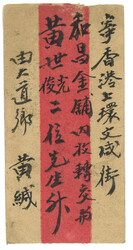 香港上環文咸街
和昌金舖內收轉交與
黃世光俊二位先生升
由上道鄉 黃緘